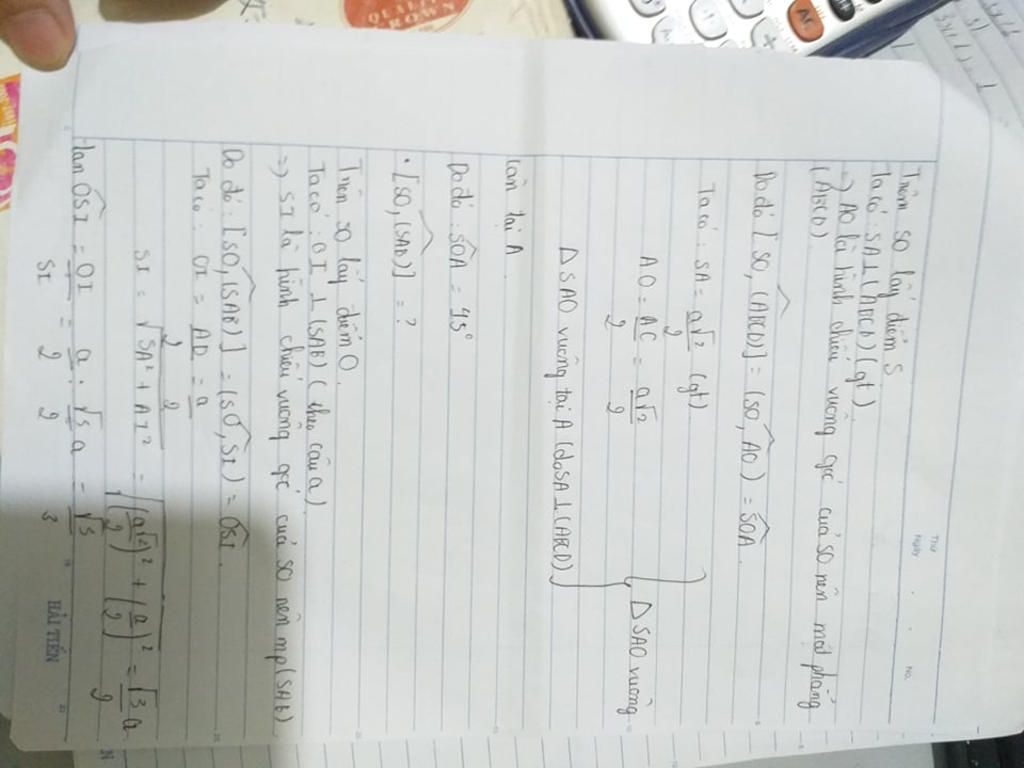 Thứ
Ngày . . No.
Trên SO lấy điểm S
Ta có : SA⊥(ABCD) (gt)
=> AO là hình chiếu vuông góc của SO nên mặt phẳng
(ABCD).
Do đó [SO, (ABCD)] = (SO, AO) = SOA.
Ta có : SA = a√2/2 (gt)
AO = AC/2 = a√2/2
} Δ SAO vuông
Δ SAO vuông tại A (do SA⊥(ABCD))
cân tại A.
Do đó : SOA = 45°
• [SO, (SAB)] = ?
Trên SO lấy điểm O.
Ta có : OI ⊥ (SAB) (theo câu a)
=> SI là hình chiếu vuông góc của SO nên mp(SAB)
Do đó : [SO, (SAB)] = (SO, SI) = OSI.
Ta có : OI = AD/2 = a/2
SI = √(SA² + AI²) = √((a√2/2)² + (a/2)²) = √3a/2
tan OSI = OI/SI = a/2 : √3a/2 = √3/3
HẢI TIẾN
QUALITY
CROWN
AC